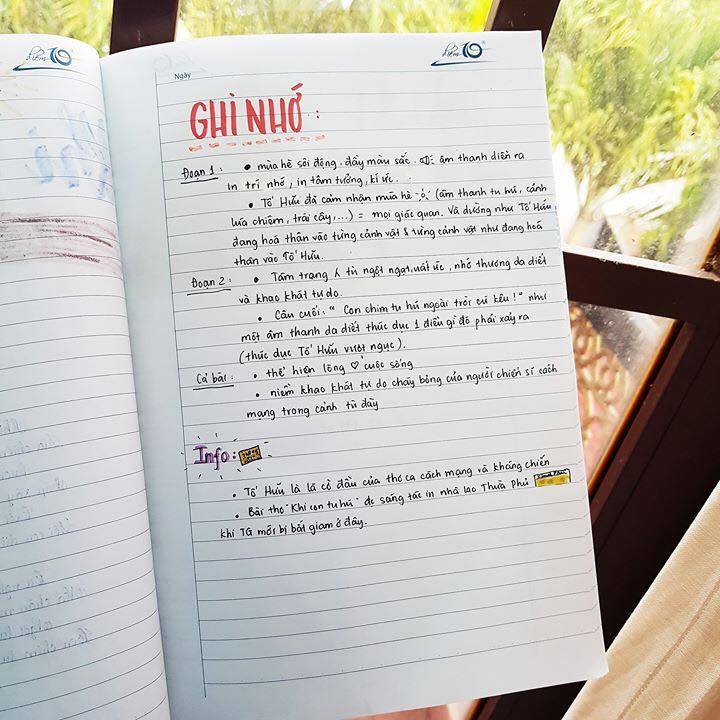 điểm 10
điểm 10
Ngày
GHI NHỚ :
Đoạn 1 : • mùa hè sôi động, đầy màu sắc. âm thanh diễn ra
in trí nhớ, in tâm tưởng, kí ức.
• Tố Hữu đã cảm nhận mùa hè (âm thanh tu hú, cánh
lúa chiêm, trái cây,...) = mọi giác quan. Và dường như Tố Hữu
đang hoá thân vào từng cảnh vật & từng cảnh vật như đang hoá
thân vào Tố Hữu.
Đoạn 2 : • Tâm trạng tù ngột ngạt, uất ức, nhớ thương da diết
và khao khát tự do.
• Câu cuối: " Con chim tu hú ngoài trời cứ kêu ! " như
một âm thanh da diết thúc dục 1 điều gì đó phải xảy ra
(thúc dục Tố Hữu vượt ngục).
Cả bài : • thể hiện lòng ♡ cuộc sống
• niềm khao khát tự do cháy bỏng của người chiến sĩ cách
mạng trong cảnh tù đày
Info :
• Tố Hữu là lá cờ đầu của thơ ca cách mạng và kháng chiến
• Bài thơ "Khi con tu hú" đc sáng tác in nhà lao Thừa Phủ
khi TG mới bị bắt giam ở đây.